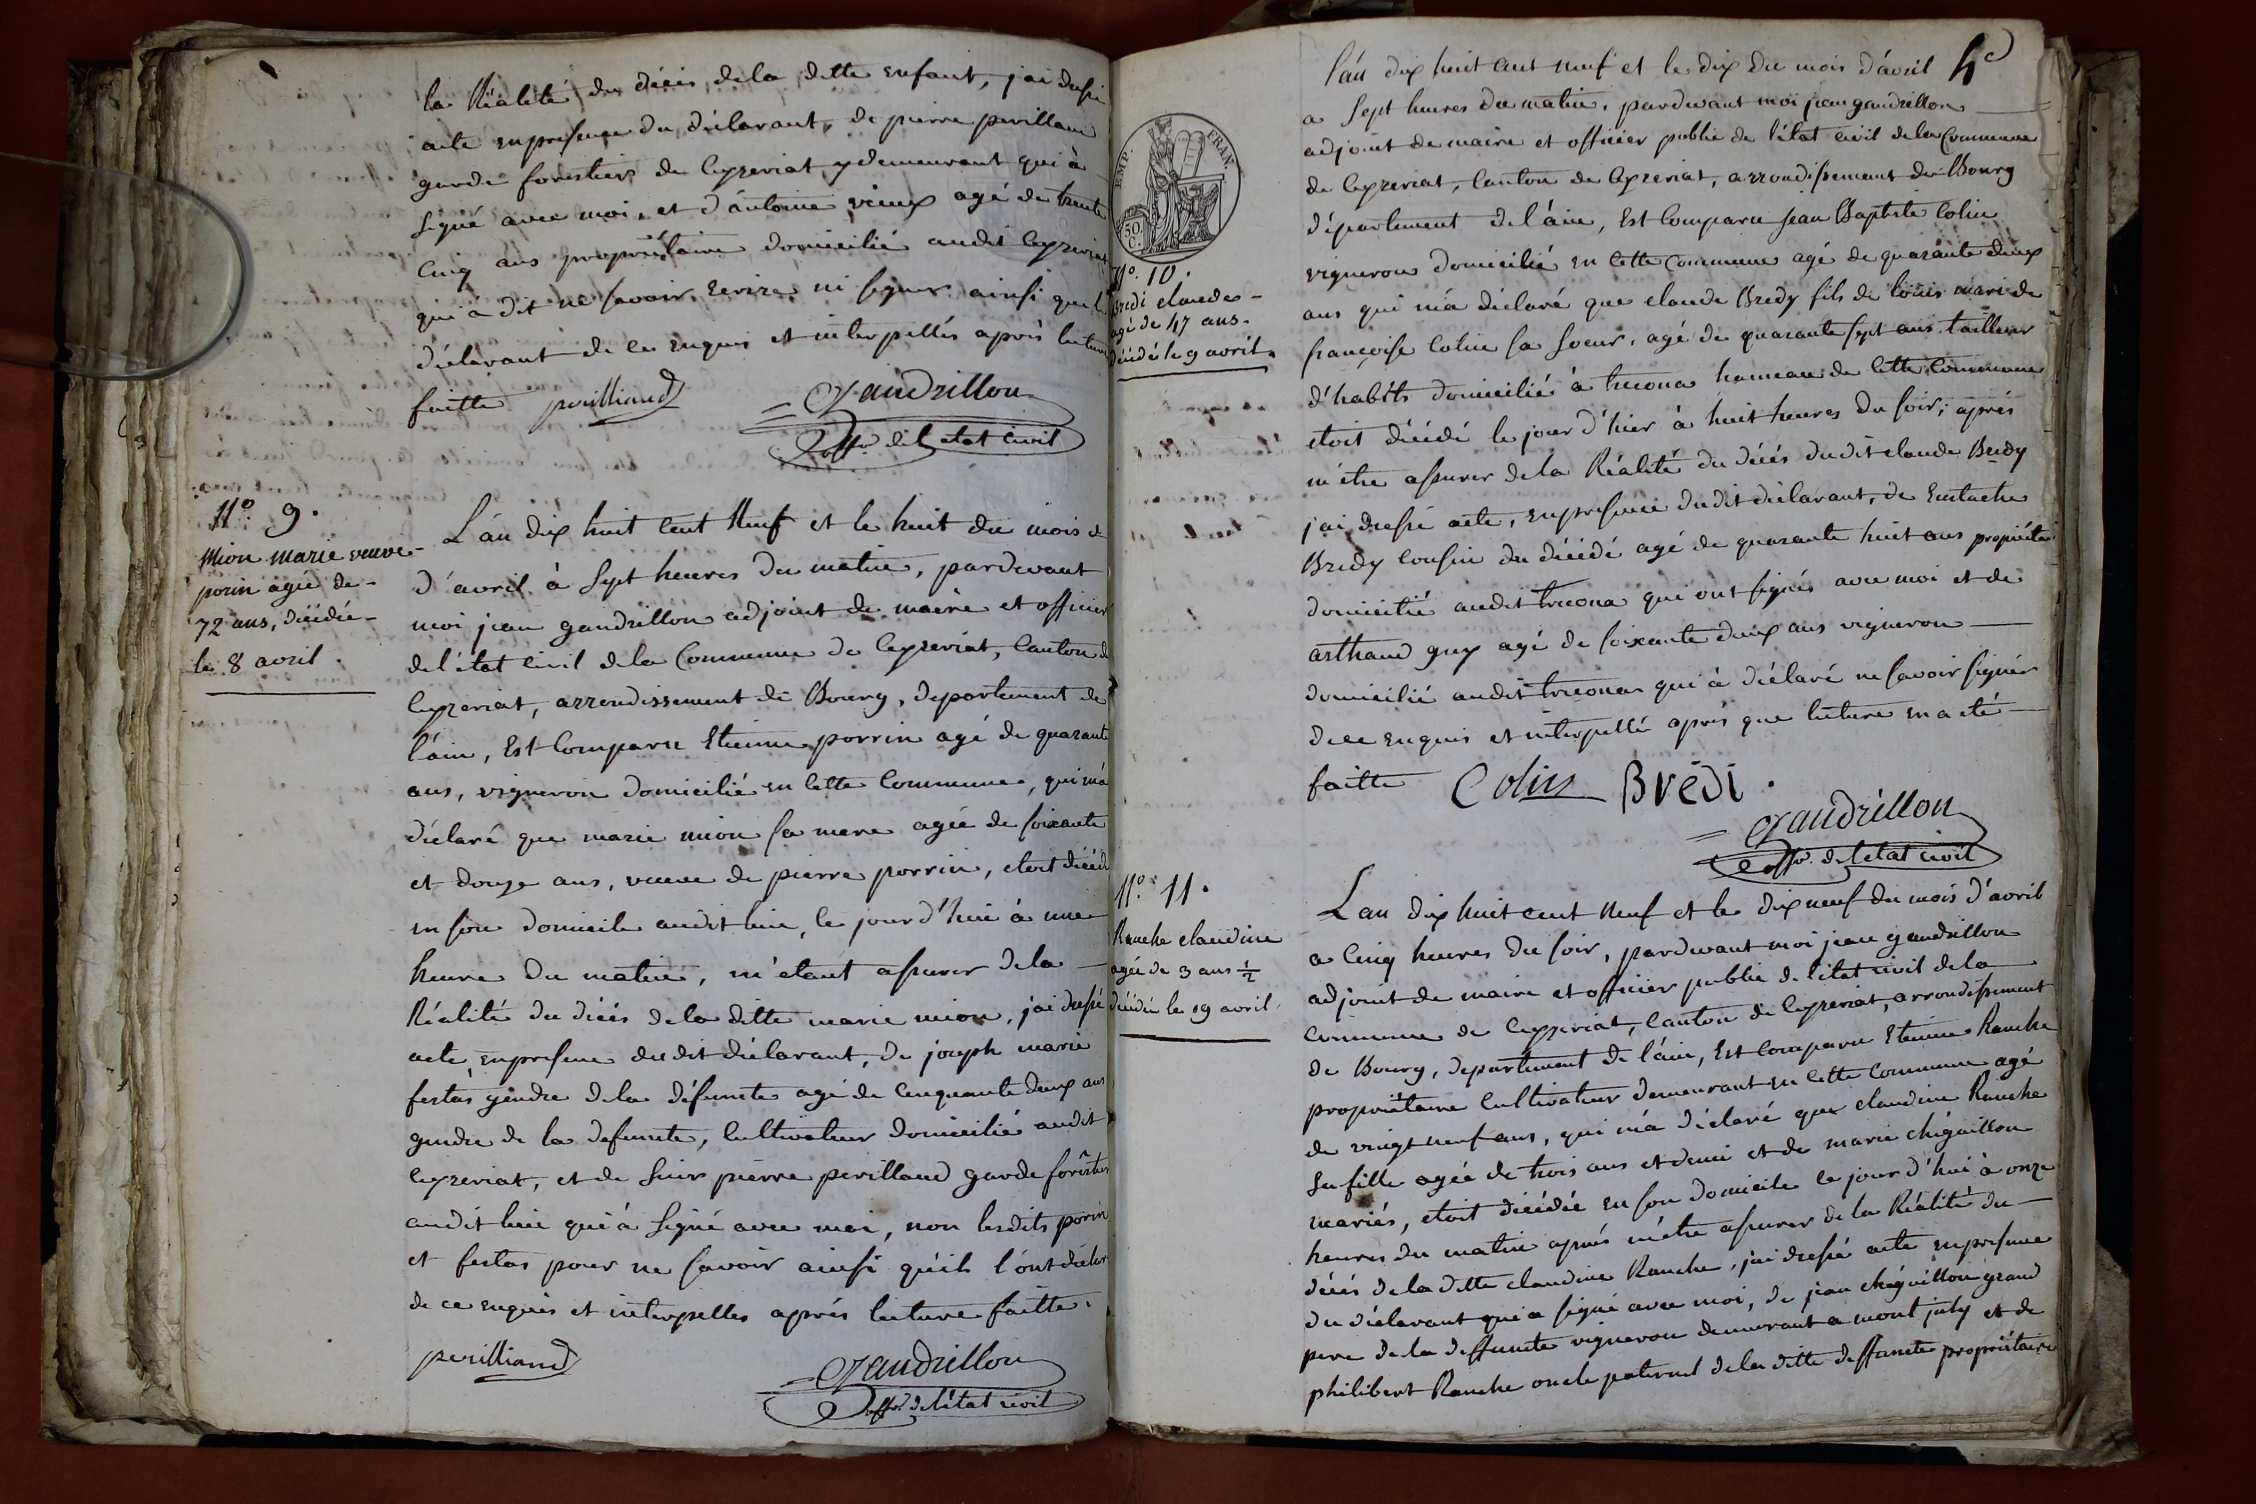 la Réalité du décès de la ditte enfant, j'ai dressé
acte en presence du déclarant, de pierre perilland
garde forestiers de Ceyzeriat y demeurant qui à
signé avec moi, et d'antoine vieux agé de trente
cinq ans propriétaire domicilié audit Ceyzeriat
qui à dit ne savoir ecrire ni signer ainsi que le
déclarant de ce enquis et interpellés après lecture
faitte perilliand Gaudrillon
offr. de l'etat civil
N.o 9.
Mion marie veuve
porin agée de
72 ans, décédée
le 8 avril.
L'an dix huit cent Neuf et le huit du mois d
d'avril à sept heures du matin, pardevant
moi jean gaudrillon adjoint de maire et officier
de l'état civil de la Commune de Ceyzeriat, Canton de
Ceyzeriat, arrondissement de Bourg, departement de
l'ain, Est Comparu Etienne porrin agé de quarante
ans, vigneron domicilié en cette Commune, qui m'a
déclaré que marie mion sa mere agée de soixante
et douze ans, veuve de pierre porrin, etoit décédé
en son domicile audit lieu, le jour d'hui à une
heure du matin, m'etant assurer de la
Réalité du décès de la ditte marie mion, j'ai dressé
acte, en presence dudit déclarant, de joseph marie
festas gendre de la défuncte agé de Cinquante deux ans
gendre de la defuncte, Cultivateur domicilié audit
Ceyzeriat, et de sieur pierre perilland garde forêstier
audit lieu qui à signé avec moi, non lesdits porin
et festas pour ne savoir ainsi qu'ils l'ont déclaré
de ce enquis et interpelles après lecture faitte.
perilliand Gaudrillon
offr. de l'état civil
4e
EMP. FRAN.
50. C.
N.o 10.
Bredi claude
agé de 47 ans
décédé le 9 avril
l'an dix huit cent neuf et le dix du mois d'avril
a sept heures du matin, pardevant moi jean gaudrillon
adjoint de maire et officier public de l'état civil de la Commune
de Ceyzeriat, Canton de Ceyzeriat, arrondissement de Bourg
département de l'ain, Est Comparu Jean Baptiste Colin
vigneron domicilié en cette Commune agé de quarante deux
ans qui m'a déclaré que claude Bredy fils de louis mari de
françoise Colin sa soeur, agé de quarante sept ans tailleur
d'habits domicilié à treconas hameau de cette Commune
etoit décédé le jour d'hier à huit heures du soir; après
m'etre assurer de la Réalité du décés dudit claude Bredy
j'ai dressé acte, en presence dudit déclarant, de Eustache
Bredy cousin du décédé agé de quarante huit ans propriétaire
domicilié audit treconas qui ont signés avec moi et de
arthaud guy agé de soixante deux ans vigneron
domicilié audit treconas qui à déclaré ne savoir signer
de ce enquis et interpellé aprés que lecture en a eté
faitte Colin BrEDi.
Gaudrillon
offr. de l'état civil
N.o 11.
Ranche claudine
agée de 3 ans 1/2
décédée le 19 avril
L'an dix huit cent Neuf et le dix neuf du mois d'avril
a Cinq heures du soir, pardevant moi jean gaudrillon
adjoint de maire et officier public de l'état civil de la
Commune de Ceyzeriat, Canton de Ceyzeriat, arrondissement
de Bourg, departement de l'ain, Est Comparu Etienne Ranche
propriétaire Cultivateur demeurant en cette Commune agé
de vingt neuf ans, qui m'a déclaré que claudine Ranche
sa fille agée de trois ans et demi et de marie chiguillon
mariés, etoit décédée en son domicile ce jour d'hui à onze
heures du matin après m'être assurer de la Réalité du
décés de la ditte claudine Ranche, j'ai dressé acte en presence
du déclarant qui a signé avec moi, de jean chiguillon grand
pere de la deffuncte vigneron demeurant a mont july et de
philibert Ranche oncle paternel de la ditte deffuncte propriétaire